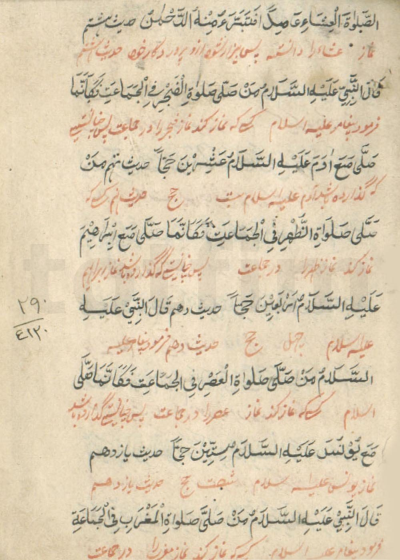 الصلوة العشاء عاصیا فتبرء منه الرحمن حدیث هشتم
نماز عشا را دانسته پس بیزار شود ازو پروردکار خود حدیث هشتم
قال النبی علیه السلام من صلی صلوة الفجر فی الجماعت فکانما
فرمود پیغامبر علیه السلام کسی که نماز کند نماز فجر را در جماعت پس چنانست
صلی مع ادم علیه السلام عشرین حجا حدیث نهم من
که گذارده آدم علیه السلام بیست حج حدیث نهم کسی که
صلی صلواة الظهر فی الجماعت فکانما صلی مع ابراهیم
نماز کند نماز ظهر را در جماعت پس چنانست که گذارده نماز ابراهیم
علیه السلام اربعین حجا حدیث دهم قال النبی علیه
علیه السلام چهل حج حدیث دهم فرمود پیغامبر علیه
السلام من صلی صلواة العصر فی الجماعت فکانما صلی
السلام کسی که نماز کند نماز عصر را در جماعت پس چنانست گذارده باشد
مع یونس علیه السلام ستین حجا حدیث یازدهم
نماز یونس علیه السلام شصت حج حدیث یازدهم
قال النبی علیه السلام من صلی صلواة المغرب فی الجماعة
فرمود پیغامبر علیه السلام کسی که نماز کند نماز مغرب را در جماعت
۲۹۰
۴۱۳۰